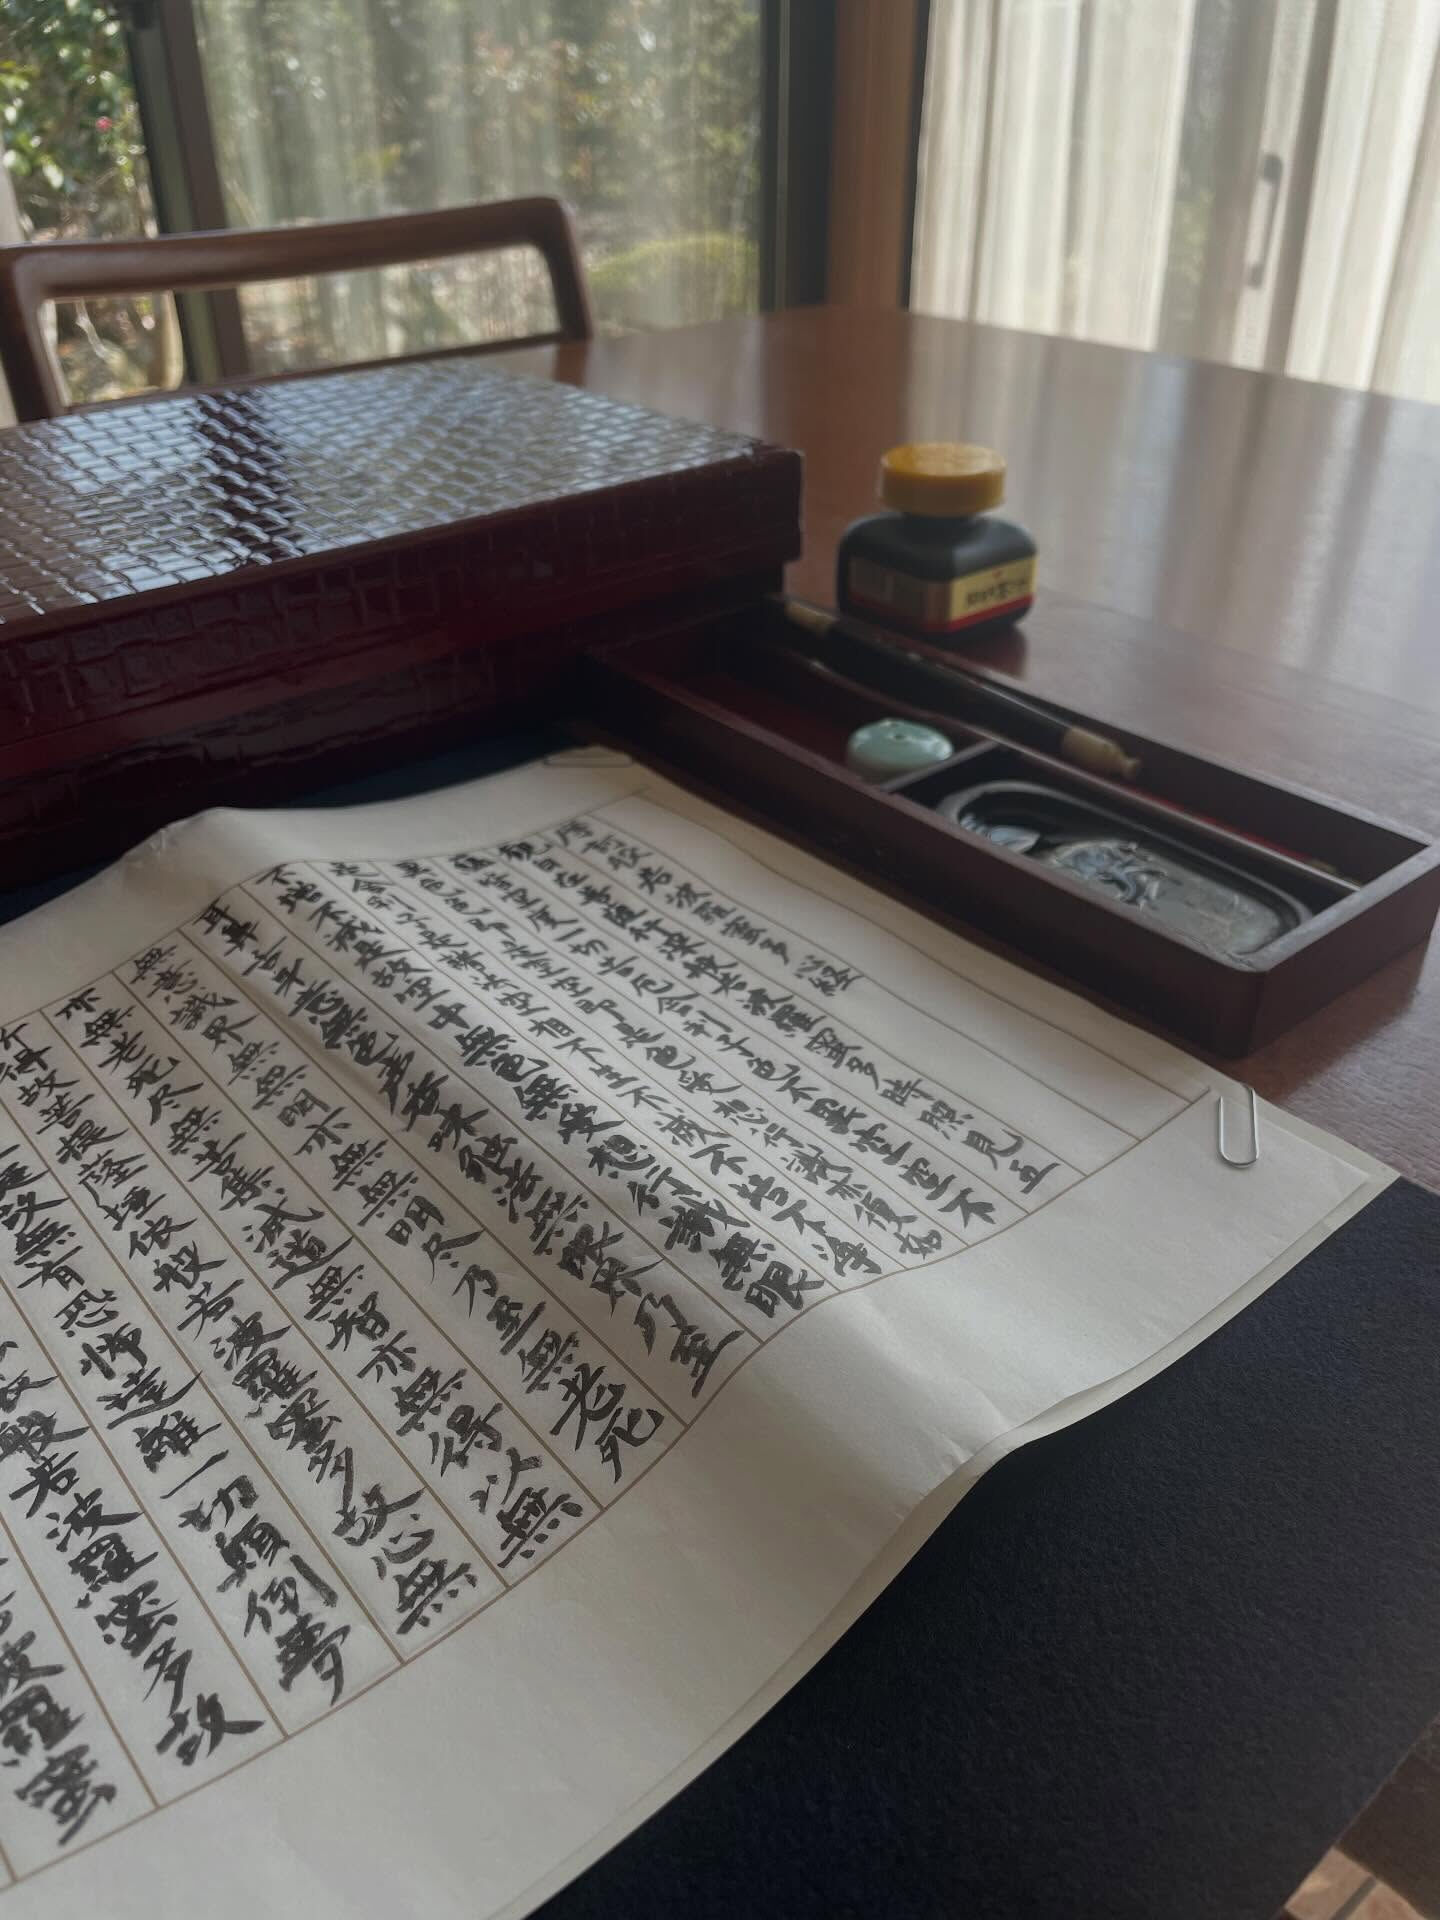 摩訶般若波羅蜜多心経
観自在菩薩行深般若波羅蜜多時照見五
蘊皆空度一切苦厄舎利子色不異空空不
異色色即是空空即是色受想行識亦復如
是舎利子是諸法空相不生不滅不垢不浄
不増不減是故空中無色無受想行識無眼
耳鼻舌身意無色声香味触法無眼界乃至
無意識界無無明亦無無明尽乃至無老死
亦無老死尽無苦集滅道無智亦無得以無
所得故菩提薩埵依般若波羅蜜多故心無
故無有恐怖遠離一切顛倒夢
依般若波羅蜜多故
波羅蜜